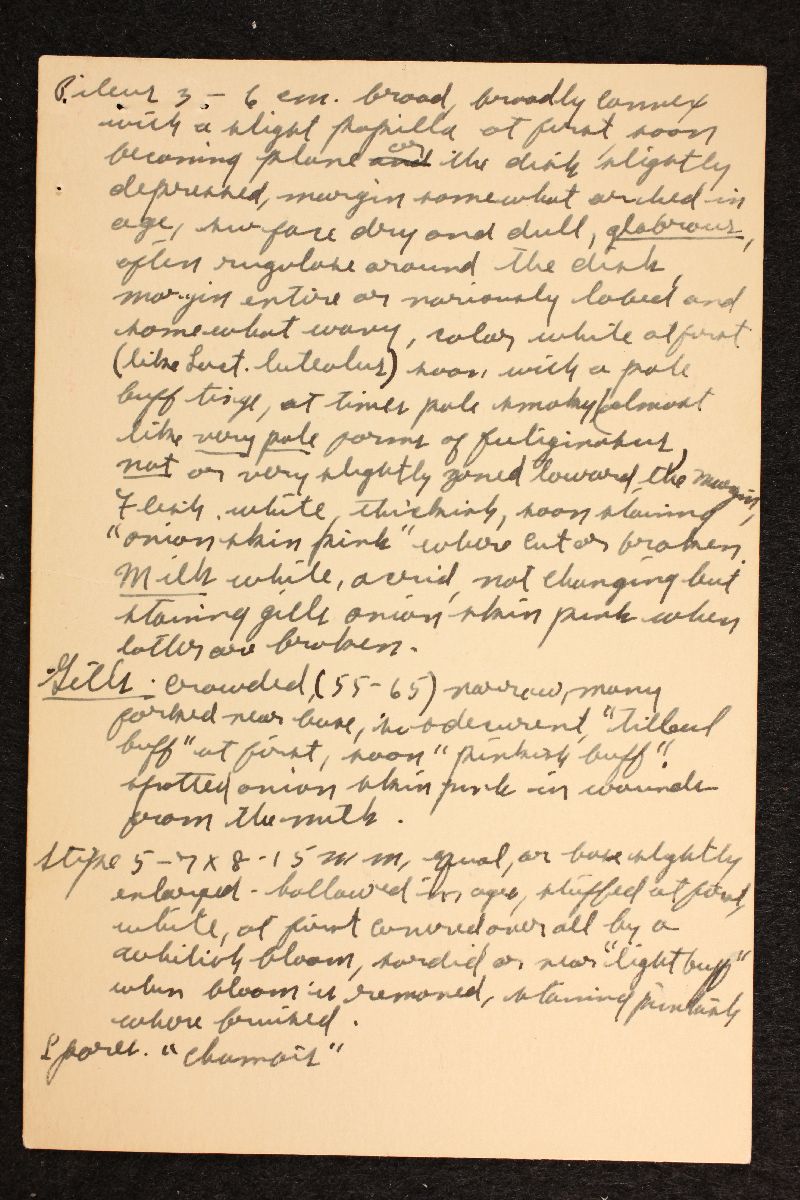 Pileus 3 - 6 cm. broad, broadly convex
with a slight papilla at first soon
becoming plane and or the disk slightly
depressed, margin somewhat arched in
age, surface dry and dull, glabrous,
often rugulose around the disk,
margin entire or variously lobed and
somewhat wavy, color white at first
(like Lact. luteolus) soon with a pale
buff tinge, at times pale smoky (almost
like very pale forms of fuliginosus,
not or very slightly zoned toward the margin,
Flesh white, thickish, soon staining
"onion skin pink" where cut or broken.
Milk white, acrid, not changing but
staining gills onion skin pink when
latter are broken.
Gills. crowded, (55-65) narrow, many
forked near base, decurrent, "tilleul
buff" at first, soon "pinkish buff".
spotted onion skin pink in wounds
from the milk.
Stipe 5-7 x 8-15 mm, equal, or base slightly
enlarged - hollowed in age, stuffed at first,
white, at first covered over all by a
whitish bloom, sordid or near "light buff"
when bloom is removed, staining pinkish
where bruised.
Spores. "chamois"